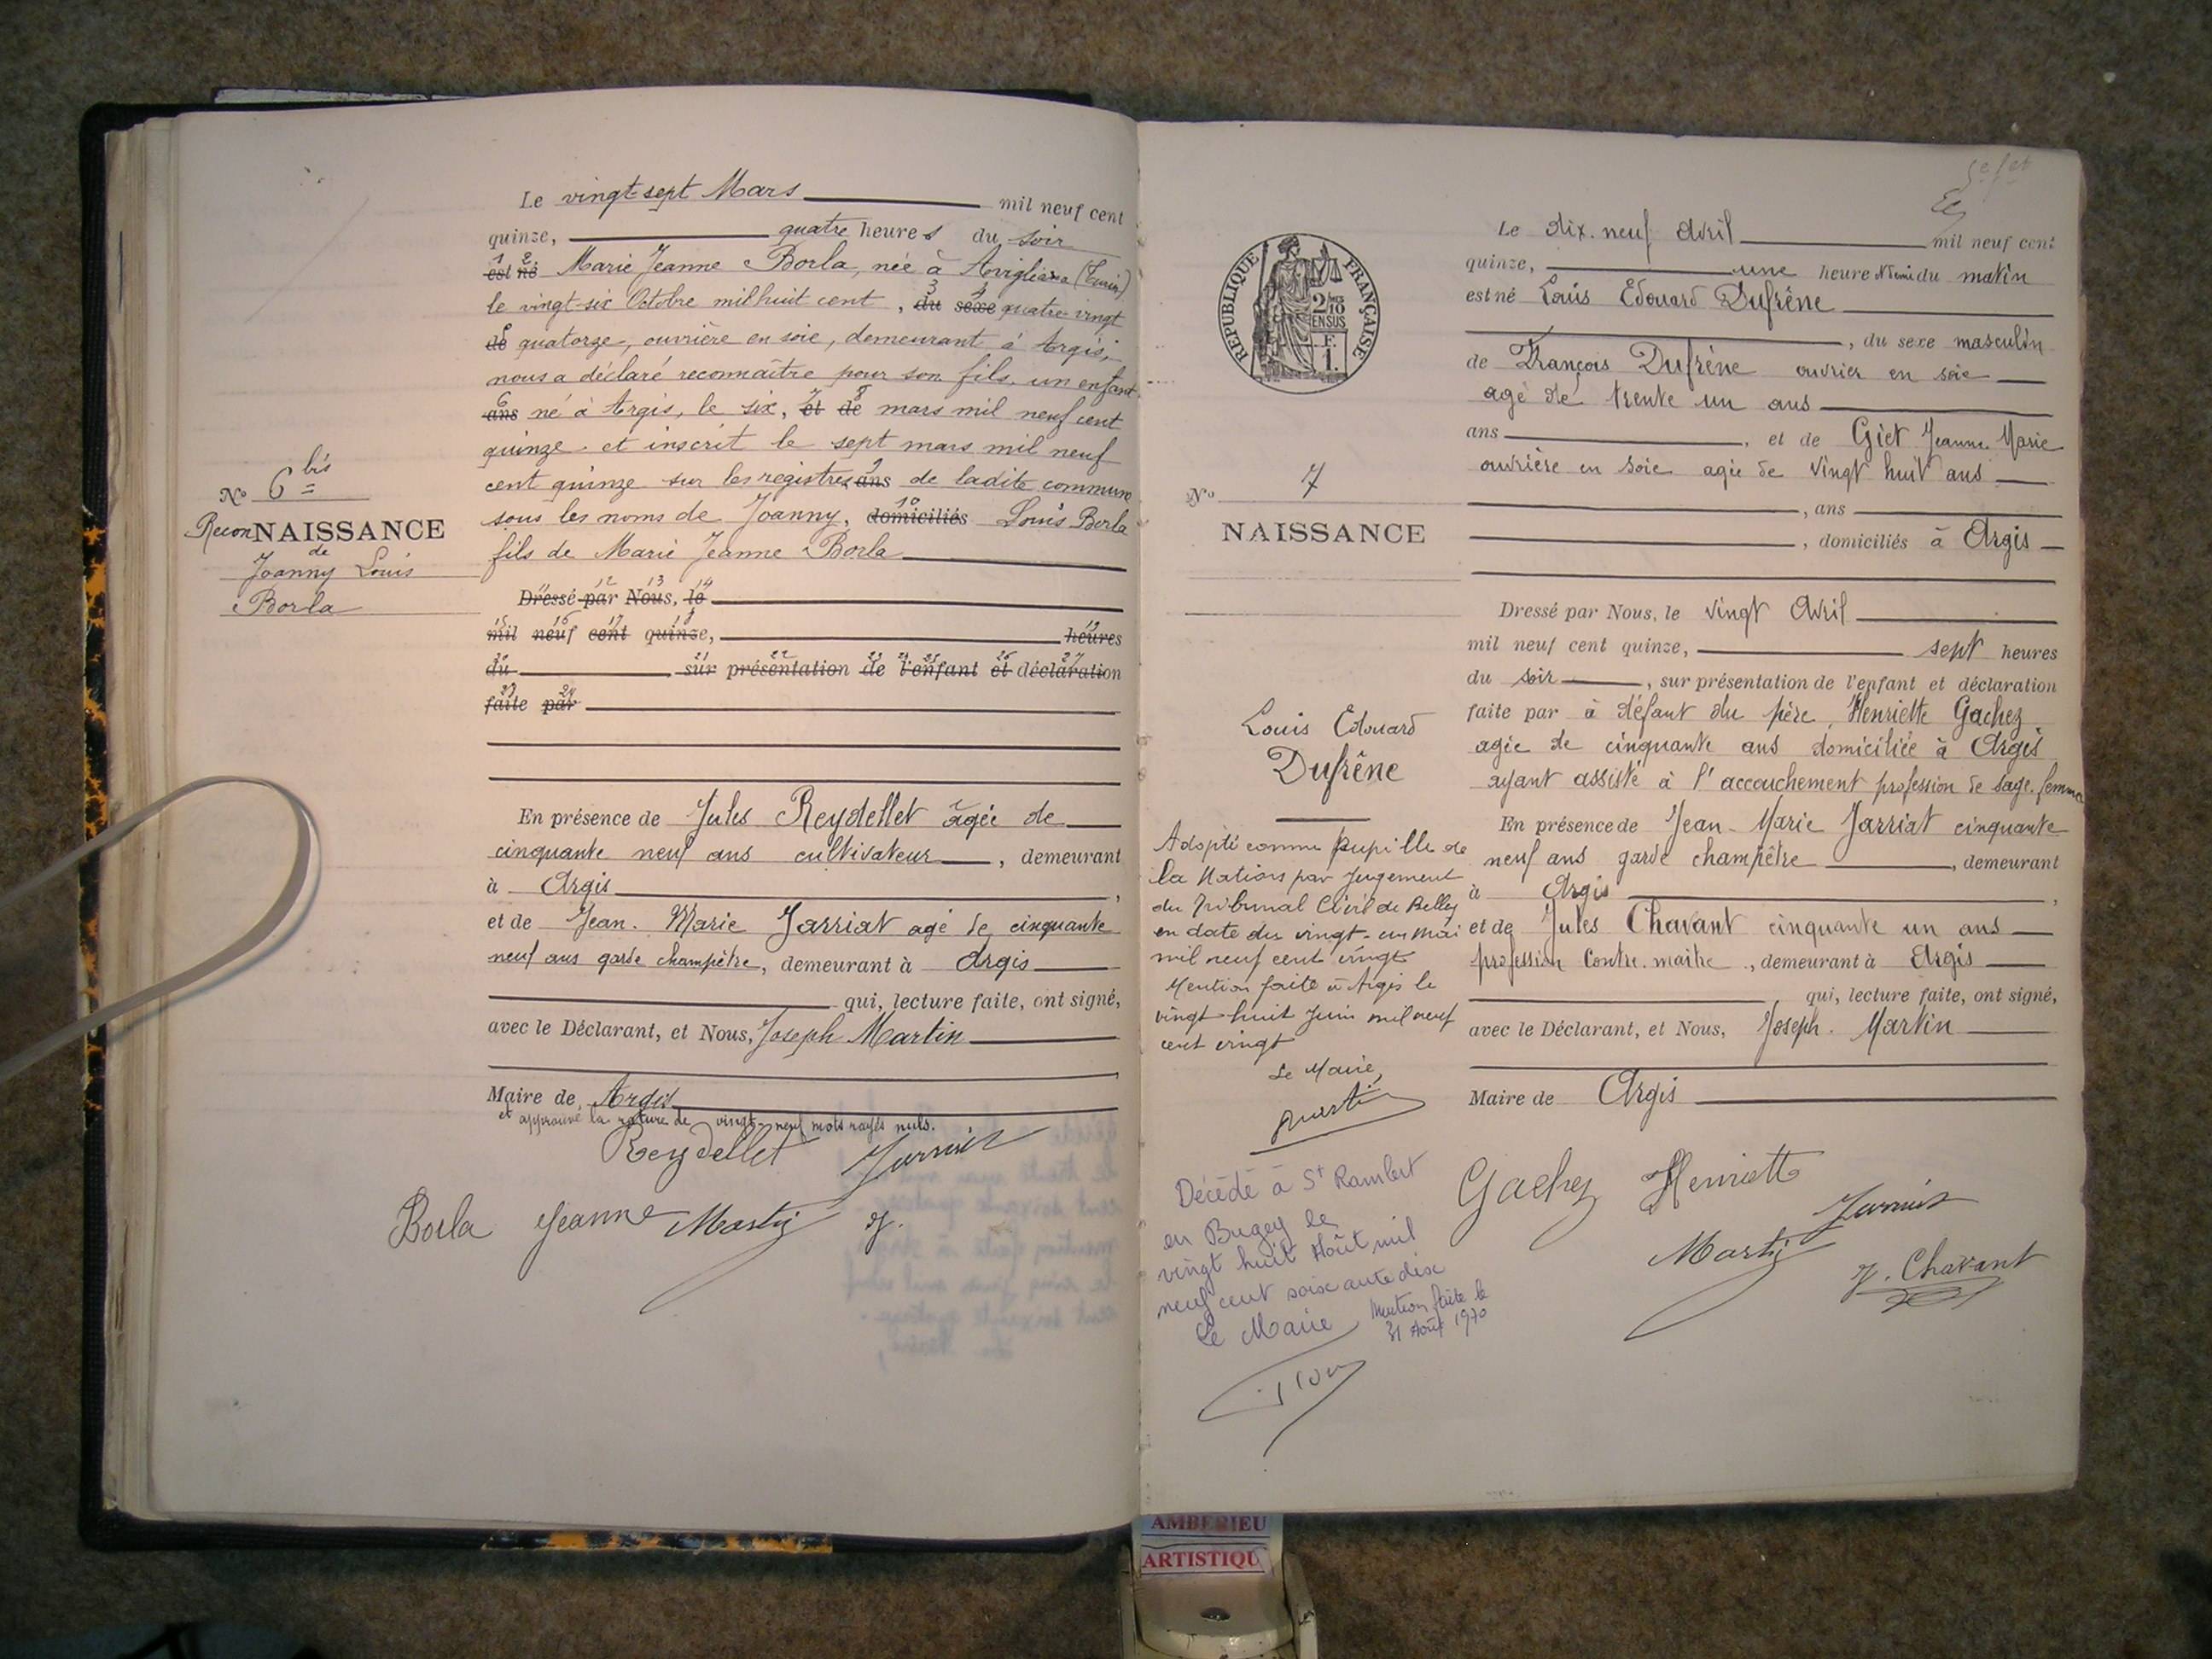 Le vingt-sept Mars mil neuf cent
quinze, quatre heures du soir
1 2
est né Marie Jeanne Borla, née à Avigliana (Turin)
3 4
le vingt-six Octobre mil huit cent, du sexe quatre vingt
5
de quatorze, ouvrière en soie, demeurant à Argis,
nous a déclaré reconnaître pour son fils, un enfant
6 7 8
ans né à Argis, le six, et de mars mil neuf cent
quinze et inscrit le sept mars mil neuf
9
cent quinze sur les registres ans de ladite commune
10
sous les noms de Joanny, domiciliés Louis Borla
fils de Marie Jeanne Borla
11 12 13 14
Dressé par Nous, le
15 16 17 18 19
mil neuf cent quinze, heures
20 21 22 23 24 25 26 27
du sur présentation de l'enfant et déclaration
29
faite par
En présence de Jules Reydellet agée de
cinquante neuf ans cultivateur, demeurant
à Argis,
et de Jean. Marie Jarriat agé de cinquante
neuf ans garde champêtre, demeurant à Argis
qui, lecture faite, ont signé,
avec le Déclarant, et Nous, Joseph Martin
Maire de Argis
et approuvé la rature de vingt-neuf mots rayés nuls.
Reydellet Jarriat
Borla Jeanne Martin J.
No 6 bis
Recon NAISSANCE
de
Joanny Louis
Borla
RÉPUBLIQUE FRANÇAISE
2/10
EN SUS
F.
1.
No 7
NAISSANCE
Louis Edouard
Dufrêne
Adopté comme pupille de
la Nation par jugement
du Tribunal Civil de Belley
en date du vingt-un Mai
mil neuf cent vingt
Mention faite à Argis le
vingt-huit Juin mil neuf
cent vingt
Le Maire,
Martin
Décédé à St Rambert
en Bugey le
vingt huit Août mil
neuf cent soixante dix
Le Maire
Mention faite le
31 Août 1970
Le dix. neuf Avril mil neuf cent
quinze, une heure et demi du matin
est né Louis Edouard Dufrêne
, du sexe masculin
de François Dufrêne ouvrier en soie
agé de trente un ans
ans, et de Giet Jeanne. Marie
ouvrière en soie agée de vingt huit ans
, ans
, domiciliés à Argis
Dressé par Nous, le vingt Avril
mil neuf cent quinze, sept heures
du soir, sur présentation de l'enfant et déclaration
faite par à défaut du père, Henriette Gachez
agée de cinquante ans domiciliée à Argis
ayant assisté à l'accouchement profession de sage. femme
En présence de Jean-Marie Jarriat cinquante
neuf ans garde champêtre, demeurant
à Argis,
et de Jules Chavant cinquante un ans
profession Contre. maitre, demeurant à Argis
qui, lecture faite, ont signé,
avec le Déclarant, et Nous, Joseph. Martin
Maire de Argis
Gachez Henriette
Jarriat
Martin
J. Chavant
AMBERIEU
ARTISTIQU